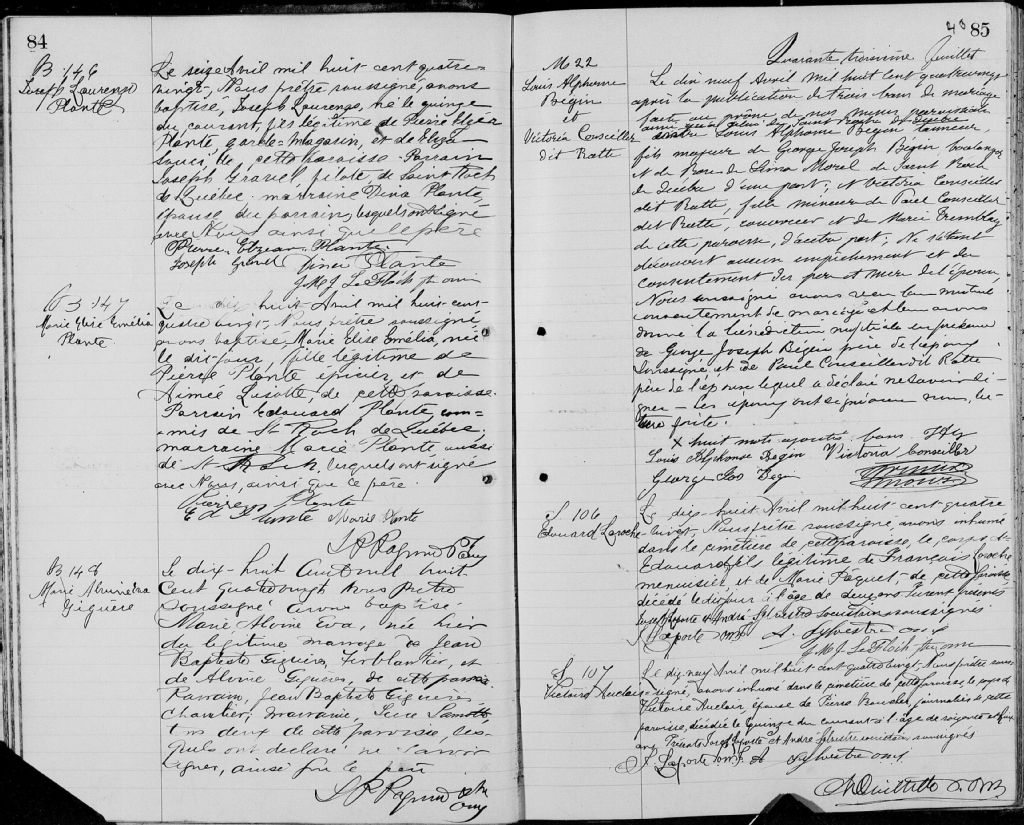 84
B 146
Joseph Laurenzo
Plante
Le seize Avril mil huit cent quatre
vingt, Nous prêtre soussigné, avons
baptisé, Joseph Laurenzo, né le quinze
du courant, fils légitime de Pierre Elzear
Plante, garde-magasin, et de Eliza
de cette paroisse. Parrain
Joseph Gravel pilote, de Saint Roch
de Québec, marraine Dina Plante,
épouse du parrain, lesquels ont signé
avec Nous ainsi que le père
Pierre Elzear Plante
Joseph Gravel Dina Plante
J M J LeFloch ptr omi
B 147
Marie Elise Emélia
Plante
Le dix huit Avril mil huit cent
quatre vingt, Nous prêtre soussigné
avons baptisé Marie Elise Emélia, née
le dit jour, fille légitime de
Pierre Plante épicier, et de
Aimée de cette paroisse.
Parrain Edouard Plante, com-
mis de St Roch de Québec,
marraine Marie Plante, aussi
de St Roch, lesquels ont signé
avec Nous, ainsi que ce père.
Pierre Plante
E d Plante Marie Plante
B 148
Marie
Giguère
Le dix-huit Avril mil huit
cent quatrevingt Nous prêtre
soussigné avons baptisé
Marie Alvine Eva, née hier
du légitime mariage de Jean
Baptiste Giguère, Ferblantier, et
de Alvine Giguère, de cette paroisse
Parrain, Jean Baptiste Giguère
marraine, Luce
tous deux de cette paroisse, les-
quels ont déclaré ne savoir
signer, ainsi que le père
43 85
Quarante troisième feuillet
M 22
Louis Alphonse
Begin
et
Victoria Conseiller
dit Ratté
Le dix neuf Avril mil huit cent quatrevingt
après la publication de trois bans de mariage
faite au prône de nos messes paroissiales
ainsi qu'à celui de Saint Roch de Québec
entre Louis Alphonse Begin tanneur,
fils majeur de George Joseph Begin boulanger
et de Rose de Lima Morel de Saint Roch
de Québec d'une part; et Victoria Conseiller
dit Ratté, fille mineure de Paul Conseiller
dit Ratté, couvreur et de Marie Tremblay
de cette paroisse, d'autre part; Ne s'étant
découvert aucun empêchement et du
consentement des père et mère de l'épouse,
Nous soussigné avons reçu leur mutuel
consentement de mariage et leur avons
donné la bénédiction nuptiale en présence
de George Joseph Bégin père de l'époux
soussigné, et de Paul Conseiller dit Ratté
père de l'épouse lequel a déclaré ne savoir si-
gner — Les époux ont signé avec nous, lec-
ture faite.
X huit mots ajoutés bons
Louis Alphonse Begin Victoria Conseiller
George Jos Begin
S 106
Edouard Laroche
Le dix-huit Avril mil huit-cent quatre
vingt, Nous prêtre soussigné, avons inhumé
dans le cimetière de cette paroisse, le corps d'
Edouard, fils légitime de François Laroche
menuisier et de Marie Paquet, de cette paroisse
décédé le dix du jour à l'âge de deux ans. Furent présents
Laporte et André Sylvestre soussignés
J Laporte omi A. Sylvestre omi
J M J LeFloch ptr omi
S 107
Victoire Auclair
Le dix-neuf Avril mil huit cent quatre vingt, Nous prêtre sous-
signé, avons inhumé dans le cimetière de cette paroisse, le corps de
Victoire Auclair, épouse de Pierre Boucher, journalier, de cette
paroisse, décédée le quinze du courant à l'âge de soixante et
ans. Présents Laporte et André Sylvestre soussignés
J. Laporte omi A Sylvestre omi